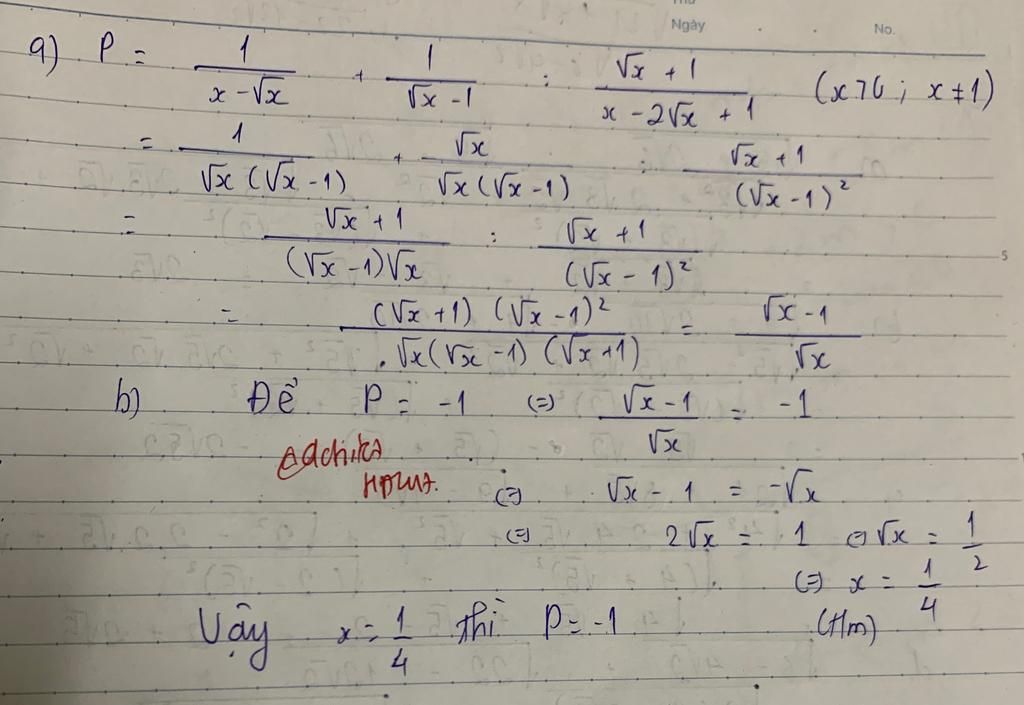 Thứ
Ngày No.
a) P = 1/(x - √x) + 1/(√x - 1) : (√x + 1)/(x - 2√x + 1) (x>0 ; x ≠ 1)
= 1/(√x (√x - 1)) + √x/(√x (√x - 1)) : (√x + 1)/(√x - 1)²
= (√x + 1)/((√x - 1)√x) : (√x + 1)/(√x - 1)²
5
= ((√x + 1) (√x - 1)²)/(√x (√x - 1) (√x + 1)) = (√x - 1)/√x
b) Để P = -1 (=) (√x - 1)/√x = -1
(=) √x - 1 = -√x
(=) 2√x = 1 (=) √x = 1/2
(=) x = 1/4
Vậy x = 1/4 thì P = -1 (t/m)